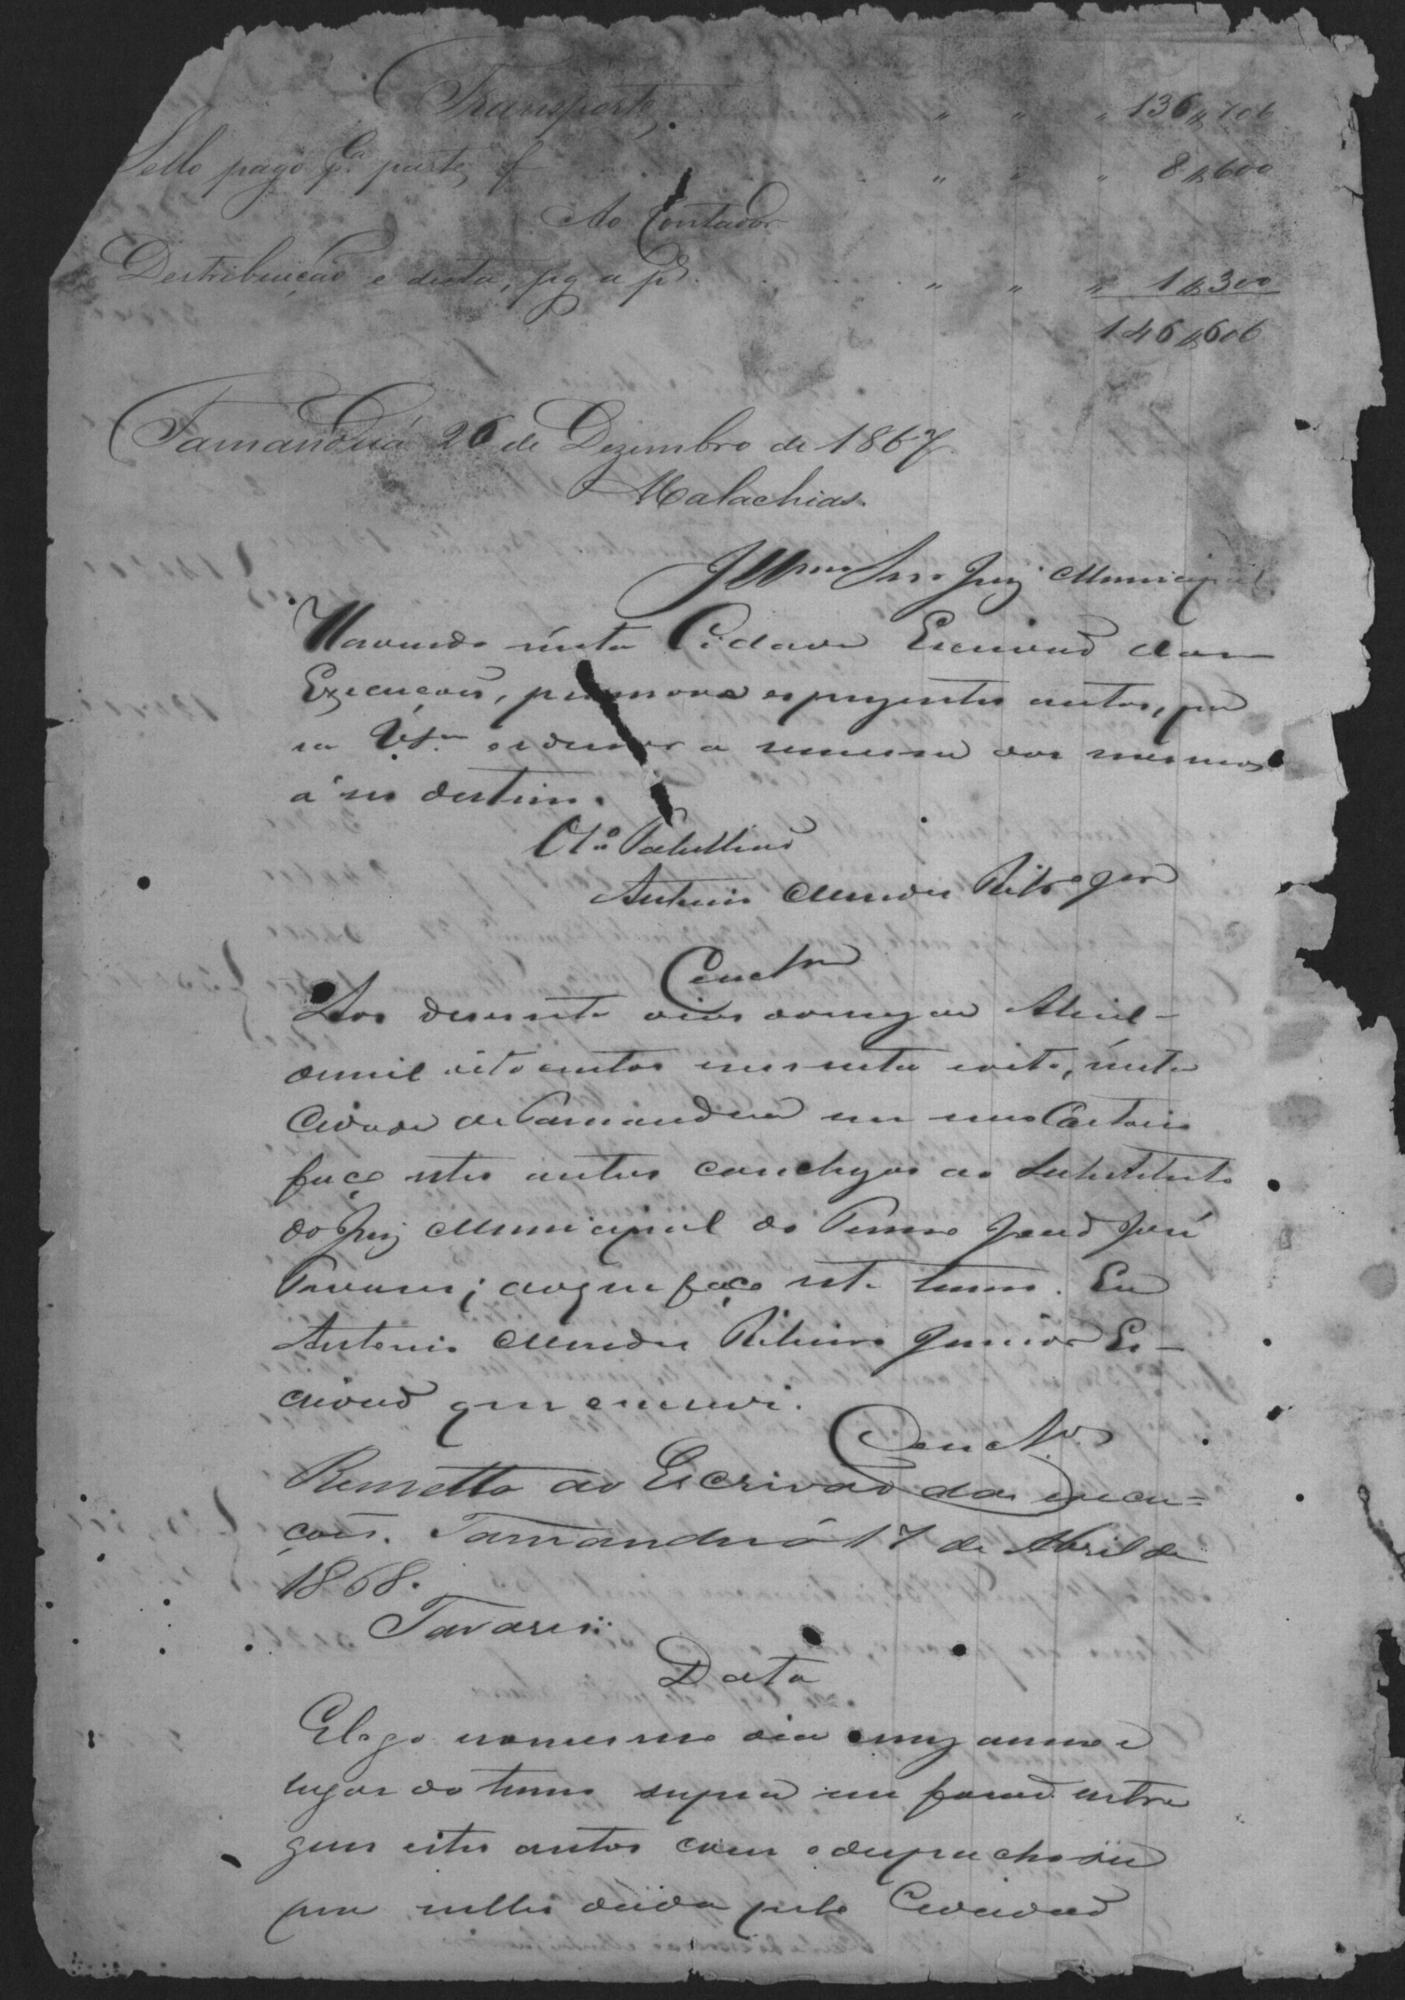 Transporte " " " 136$706
Sello pago pla parte f " " " 8$600
Ao Contador
Destribuição e desta, pg a pe " " " 1$300
146$606
Tamanduá 26 de Dezembro de 1867
Malachias.
Illmo Snr Juiz Municipal
Havendo nesta Cidade Escrivaõ das
Execuçoẽs, promova os prezentes autos, pa
ra VSa ordenar a remessa dos mesmos
á seo destino.
O 1o Tabelliaõ
Antonio Mendes Ribro Jor
Conclm
Aos desesete dias domez de Abril
demil oito centos esessenta eoito, nesta
Cidade de Tamanduá em meo Cartorio
faço estes autos conclusos ao Substituto
do Juiz Municipal do Termo Joaõ José
Tavares; doque faço este termo. Eu
Antonio Mendes Ribeiro Junior Es-
crivaõ que escrevi.
Conclos
Remetto ao Escrivaõ das execu=
çoẽs. Tamanduá 17 de Abril de
1868.
Tavares
Data
Elogo nomesmo dia mez anno e
lugar do termo supra me foraõ entre
gues estes autos com odespacho
nelles dada pelo Cidadaõ